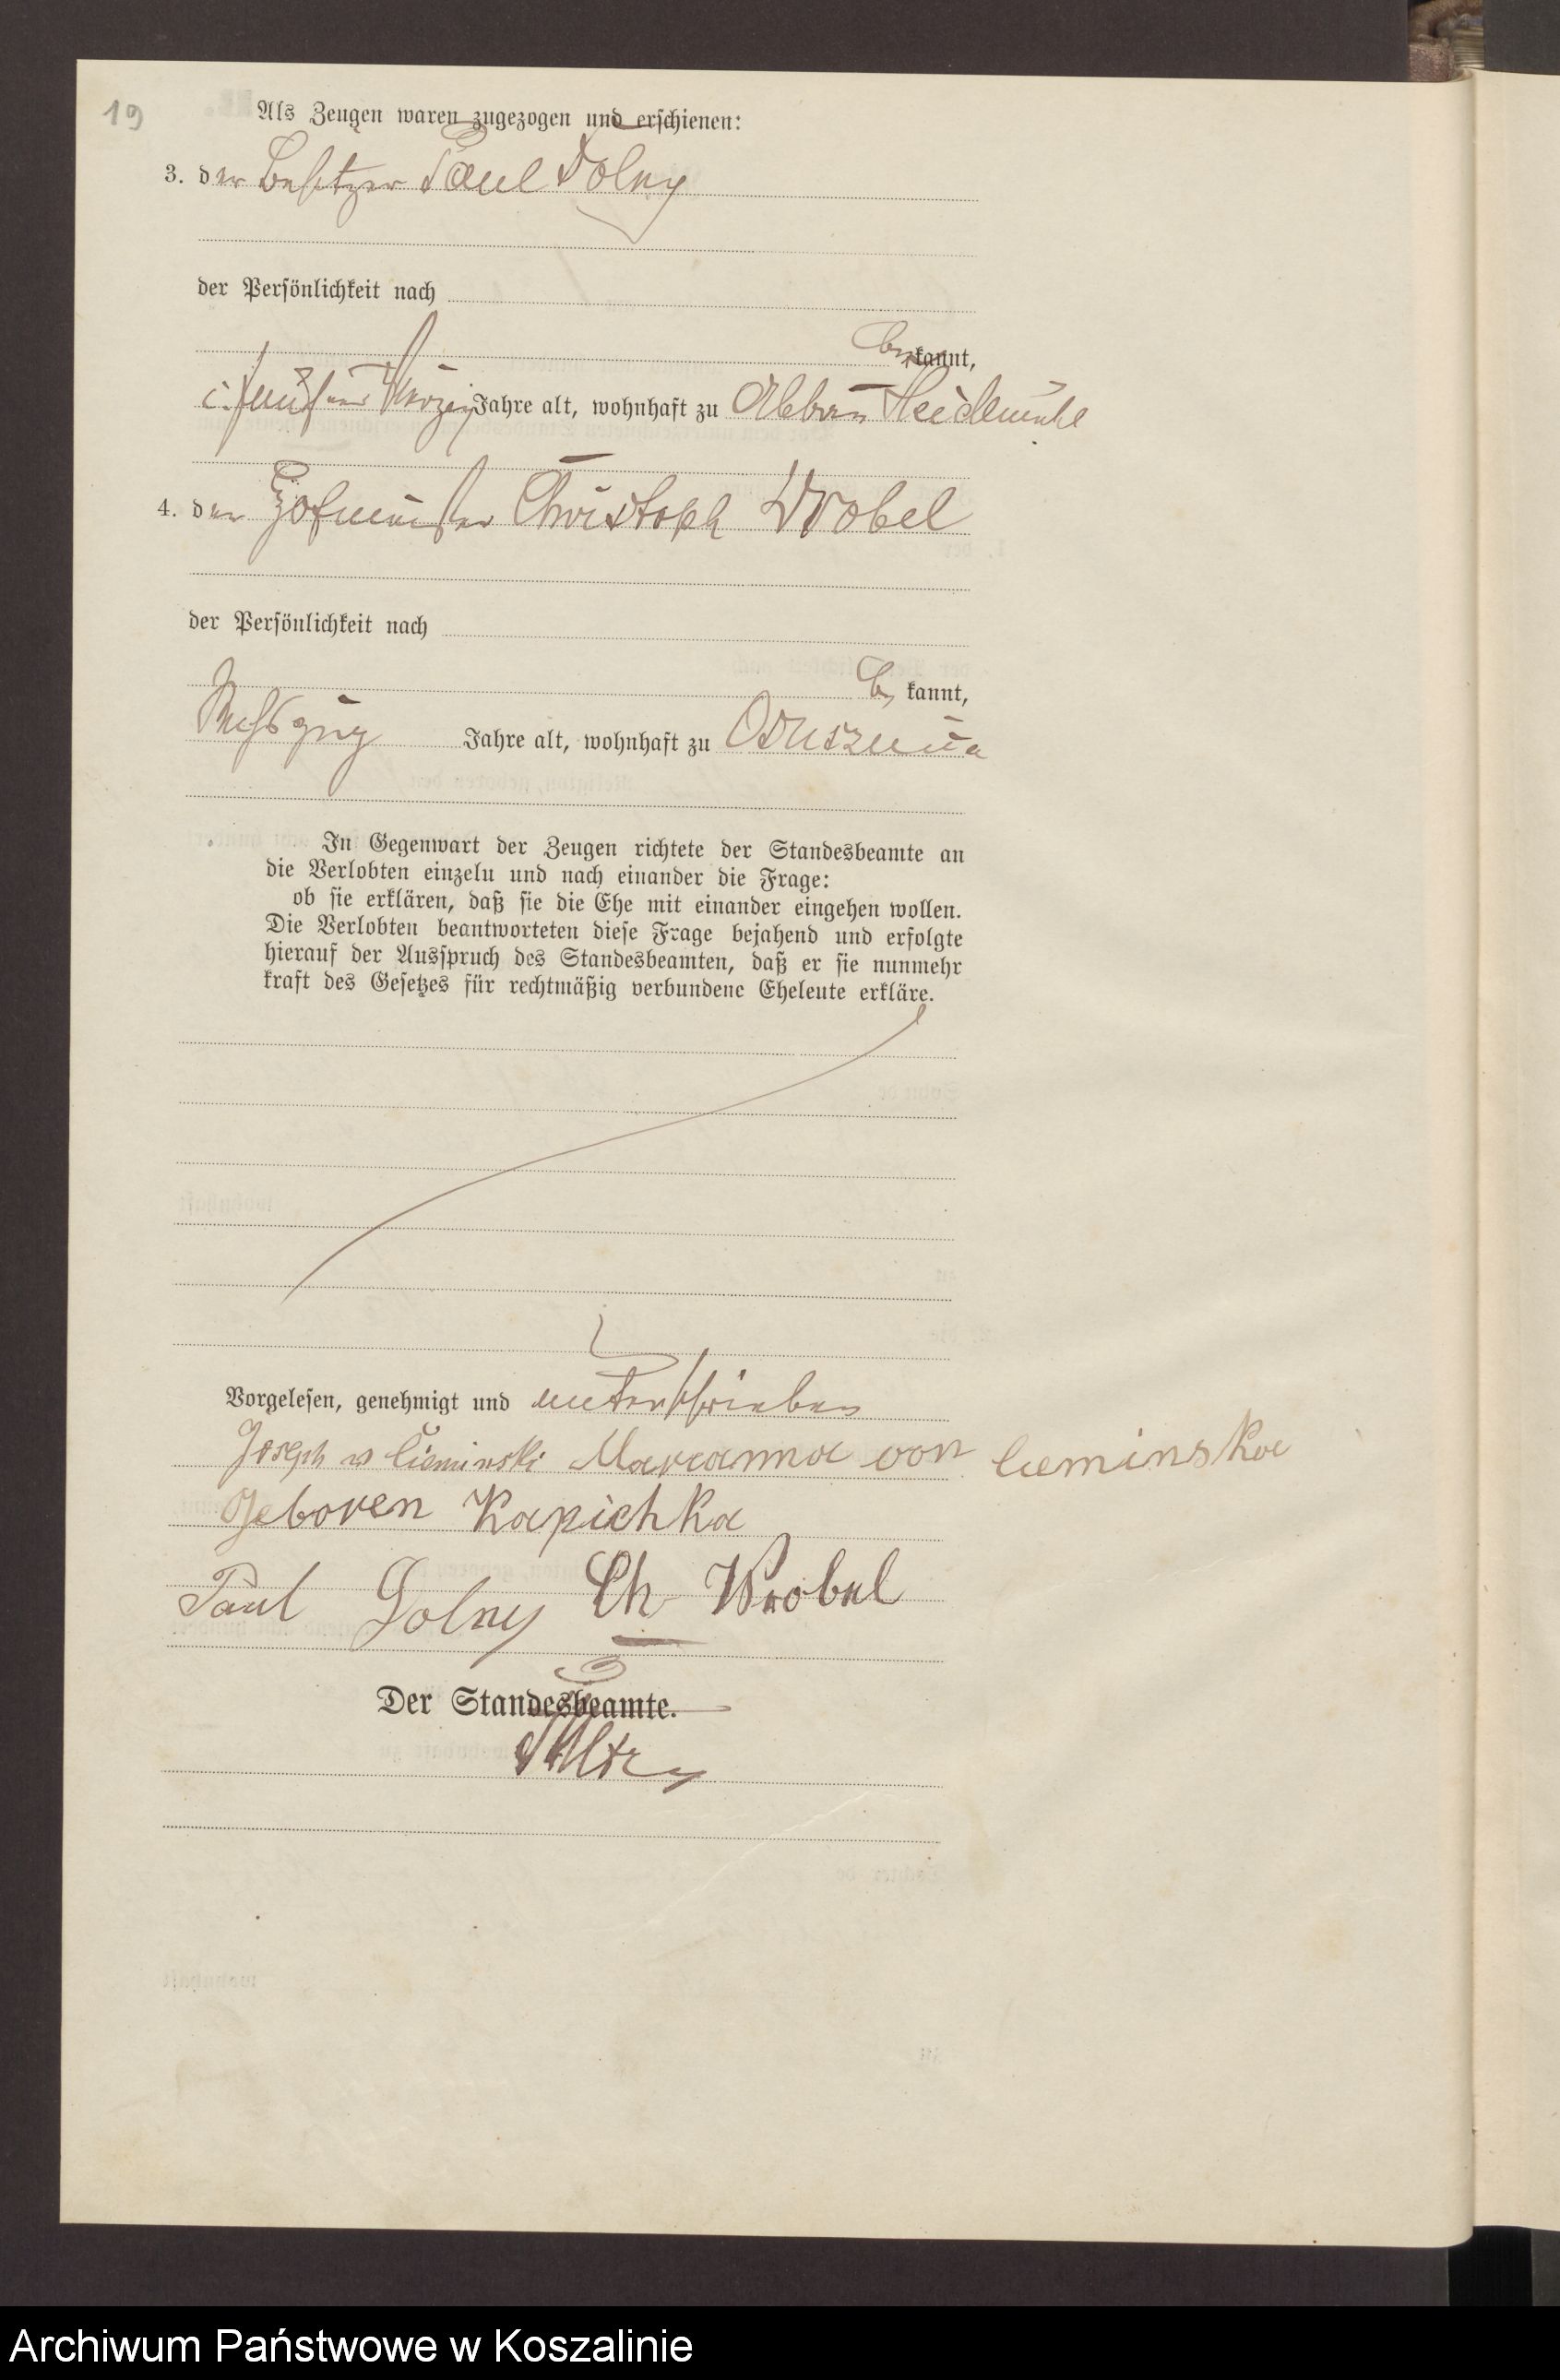 19
Als Zeugen waren zugezogen und erschienen:
3. der Besitzer Paul Dolny
der Persönlichkeit nach
be kannt,
Jahre alt, wohnhaft zu Abbau Heidemühl
4. der Hofmeister Christoph Wrobel
der Persönlichkeit nach
be kannt,
Sechszig Jahre alt, wohnhaft zu
In Gegenwart der Zeugen richtete der Standesbeamte an
die Verlobten einzeln und nach einander die Frage:
ob sie erklären, daß sie die Ehe mit einander eingehen wollen.
Die Verlobten beantworteten diese Frage bejahend und erfolgte
hierauf der Ausspruch des Standesbeamten, daß er sie nunmehr
kraft des Gesetzes für rechtmäßig verbundene Eheleute erkläre.
Vorgelesen, genehmigt und unterschrieben
Joseph v Cieminski Marianna von Cieminska
Geboren Kapichka
Paul Dolny Ch Wrobel
Der Standesbeamte.
Archiwum Państwowe w Koszalinie